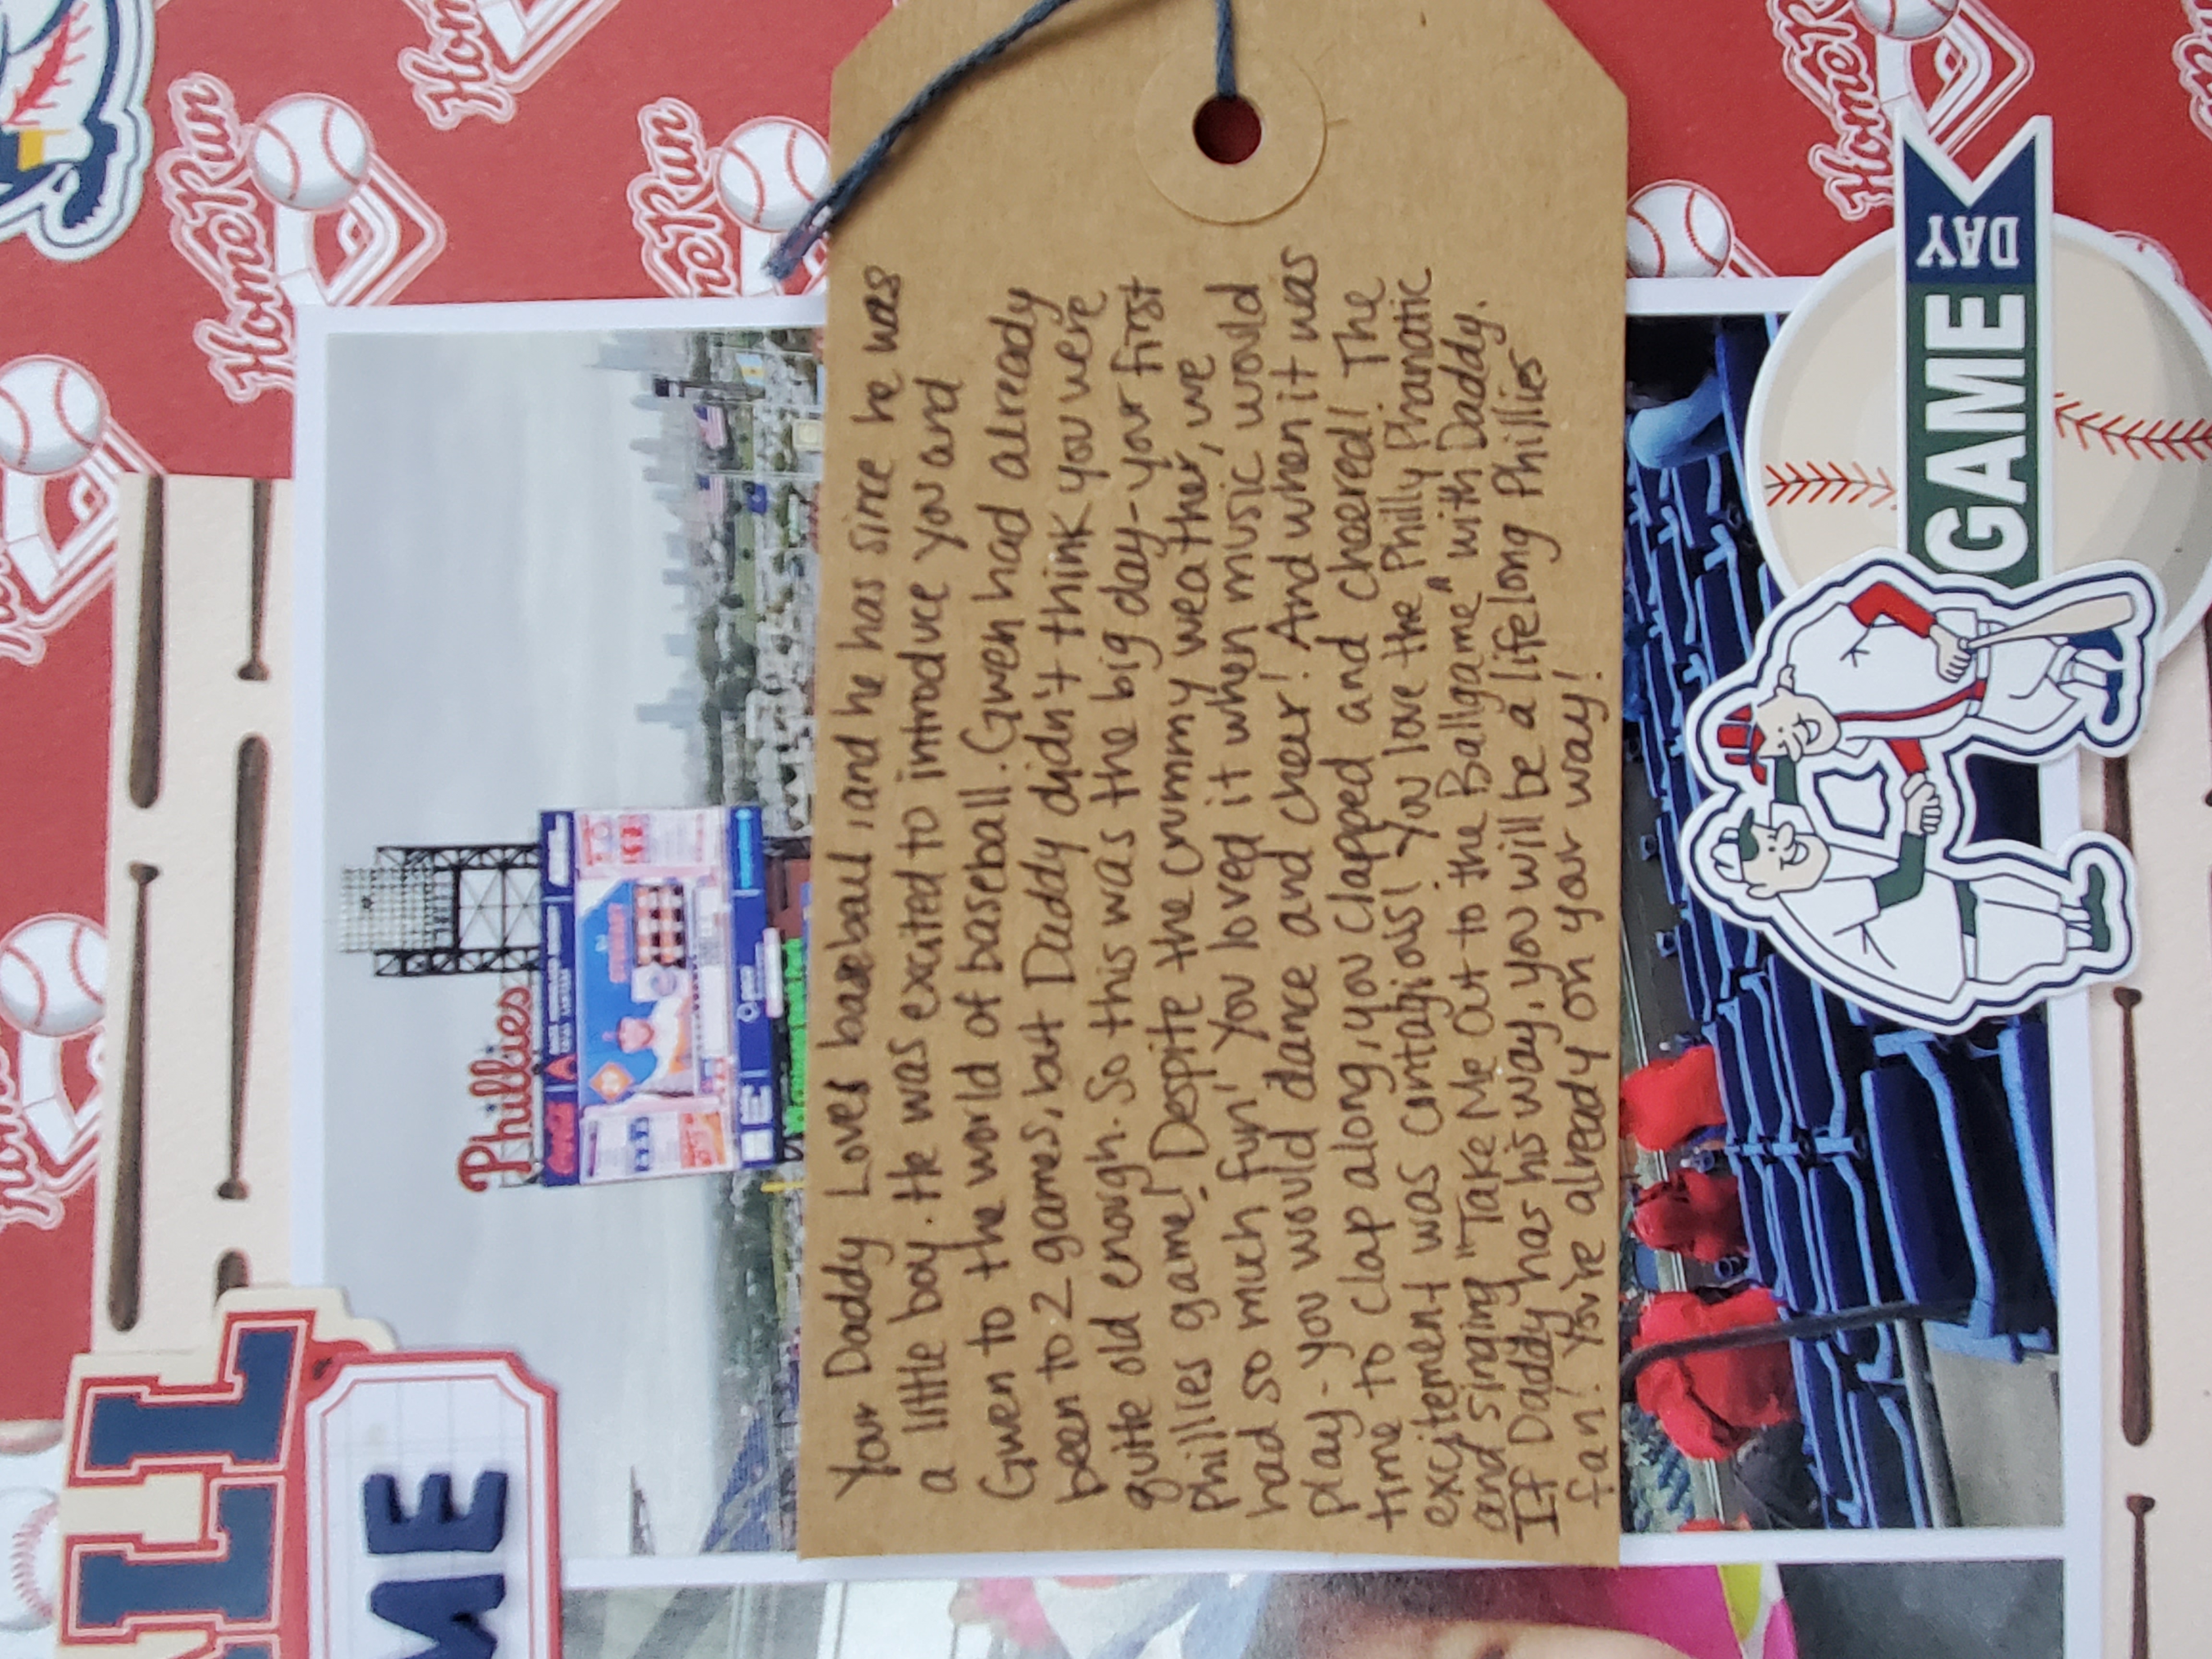 Home Run
Home Run
Home Run
Home Run
Phillies
GAME DAY
Your Daddy Loves baseball, and he has since he was
a little boy. He was excited to introduce you and
Gwen to the world of baseball. Gwen had already
been to 2 games, but Daddy didn't think you were
quite old enough. So this was the big day-your first
Phillies game! Despite the crummy weather, we
had so much fun! You loved it when music would
play - you would dance and cheer! And when it was
time to clap along, you clapped and cheered! The
excitement was contagious! You love the Philly Phanatic
and singing "Take Me Out to the Ballgame" with Daddy.
If Daddy has his way, you will be a lifelong Phillies
fan! You're already on your way!